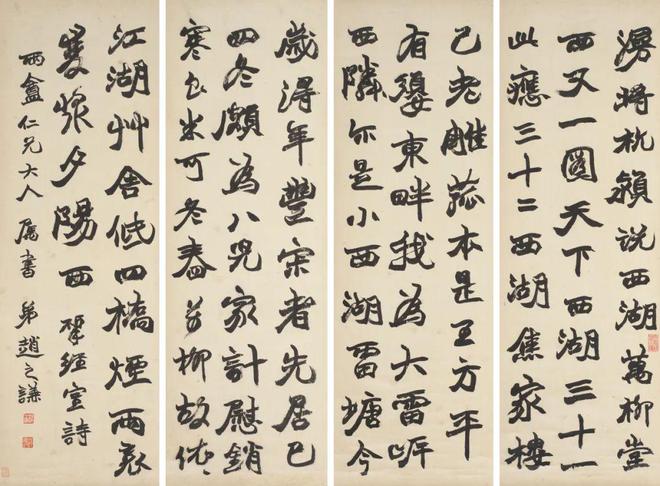 漫將杭潁說西湖萬柳堂
西又一圖天下西湖三十一
此應三十二西湖焦家樓
已老雕菰本是王方平
有東畔我為大雷岸
西隣亦是小西湖雷塘今
歲得年豐宗者先居已
四冬頗為八兒家計慰銷
寒白米可冬舂萬柳故依〻
江湖艸舍低四橋煙雨裏
雙槳夕陽西 揅經室詩
雨盦仁兄大人屬書 弟趙之謙